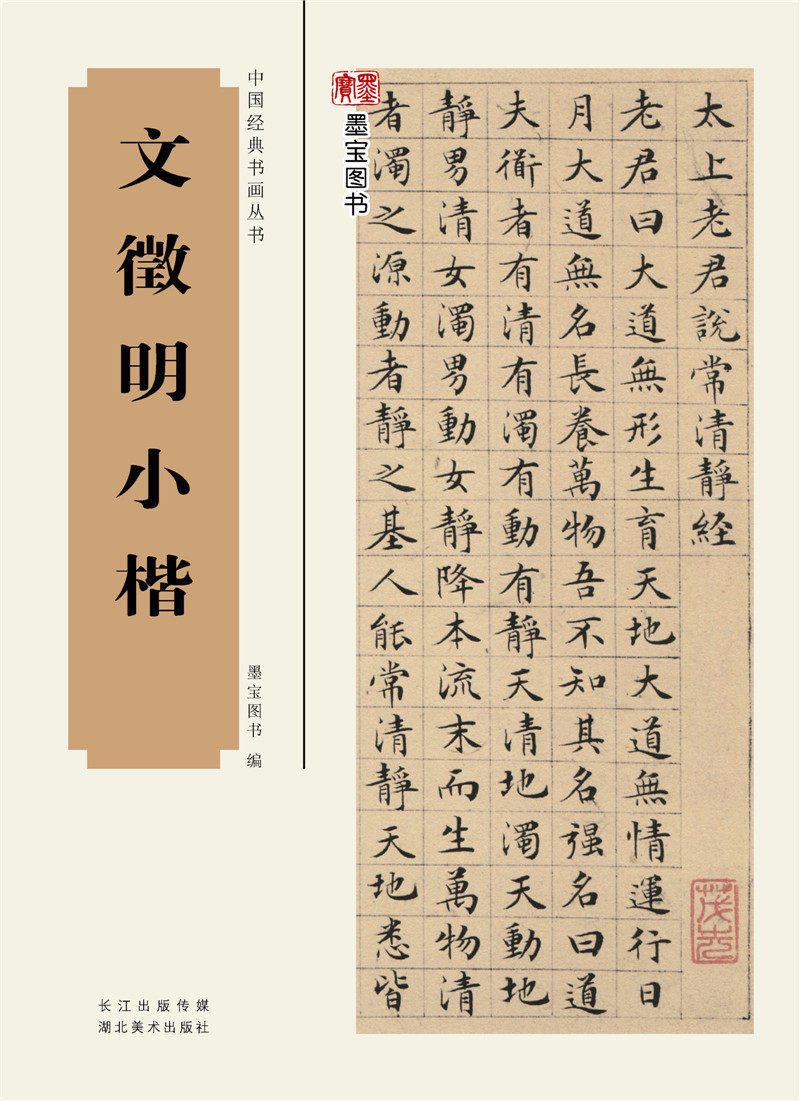 中国经典书画丛书
文徵明小楷
墨宝图书 编
长江出版传媒
湖北美术出版社
墨寶
墨宝图书
太上老君說常清靜経
老君曰大道無形生育天地大道無情運行日
月大道無名長養萬物吾不知其名强名曰道
夫衜者有清有濁有動有靜天清地濁天動地
靜男清女濁男動女靜降本流末而生萬物清
者濁之源動者靜之基人能常清靜天地悉皆